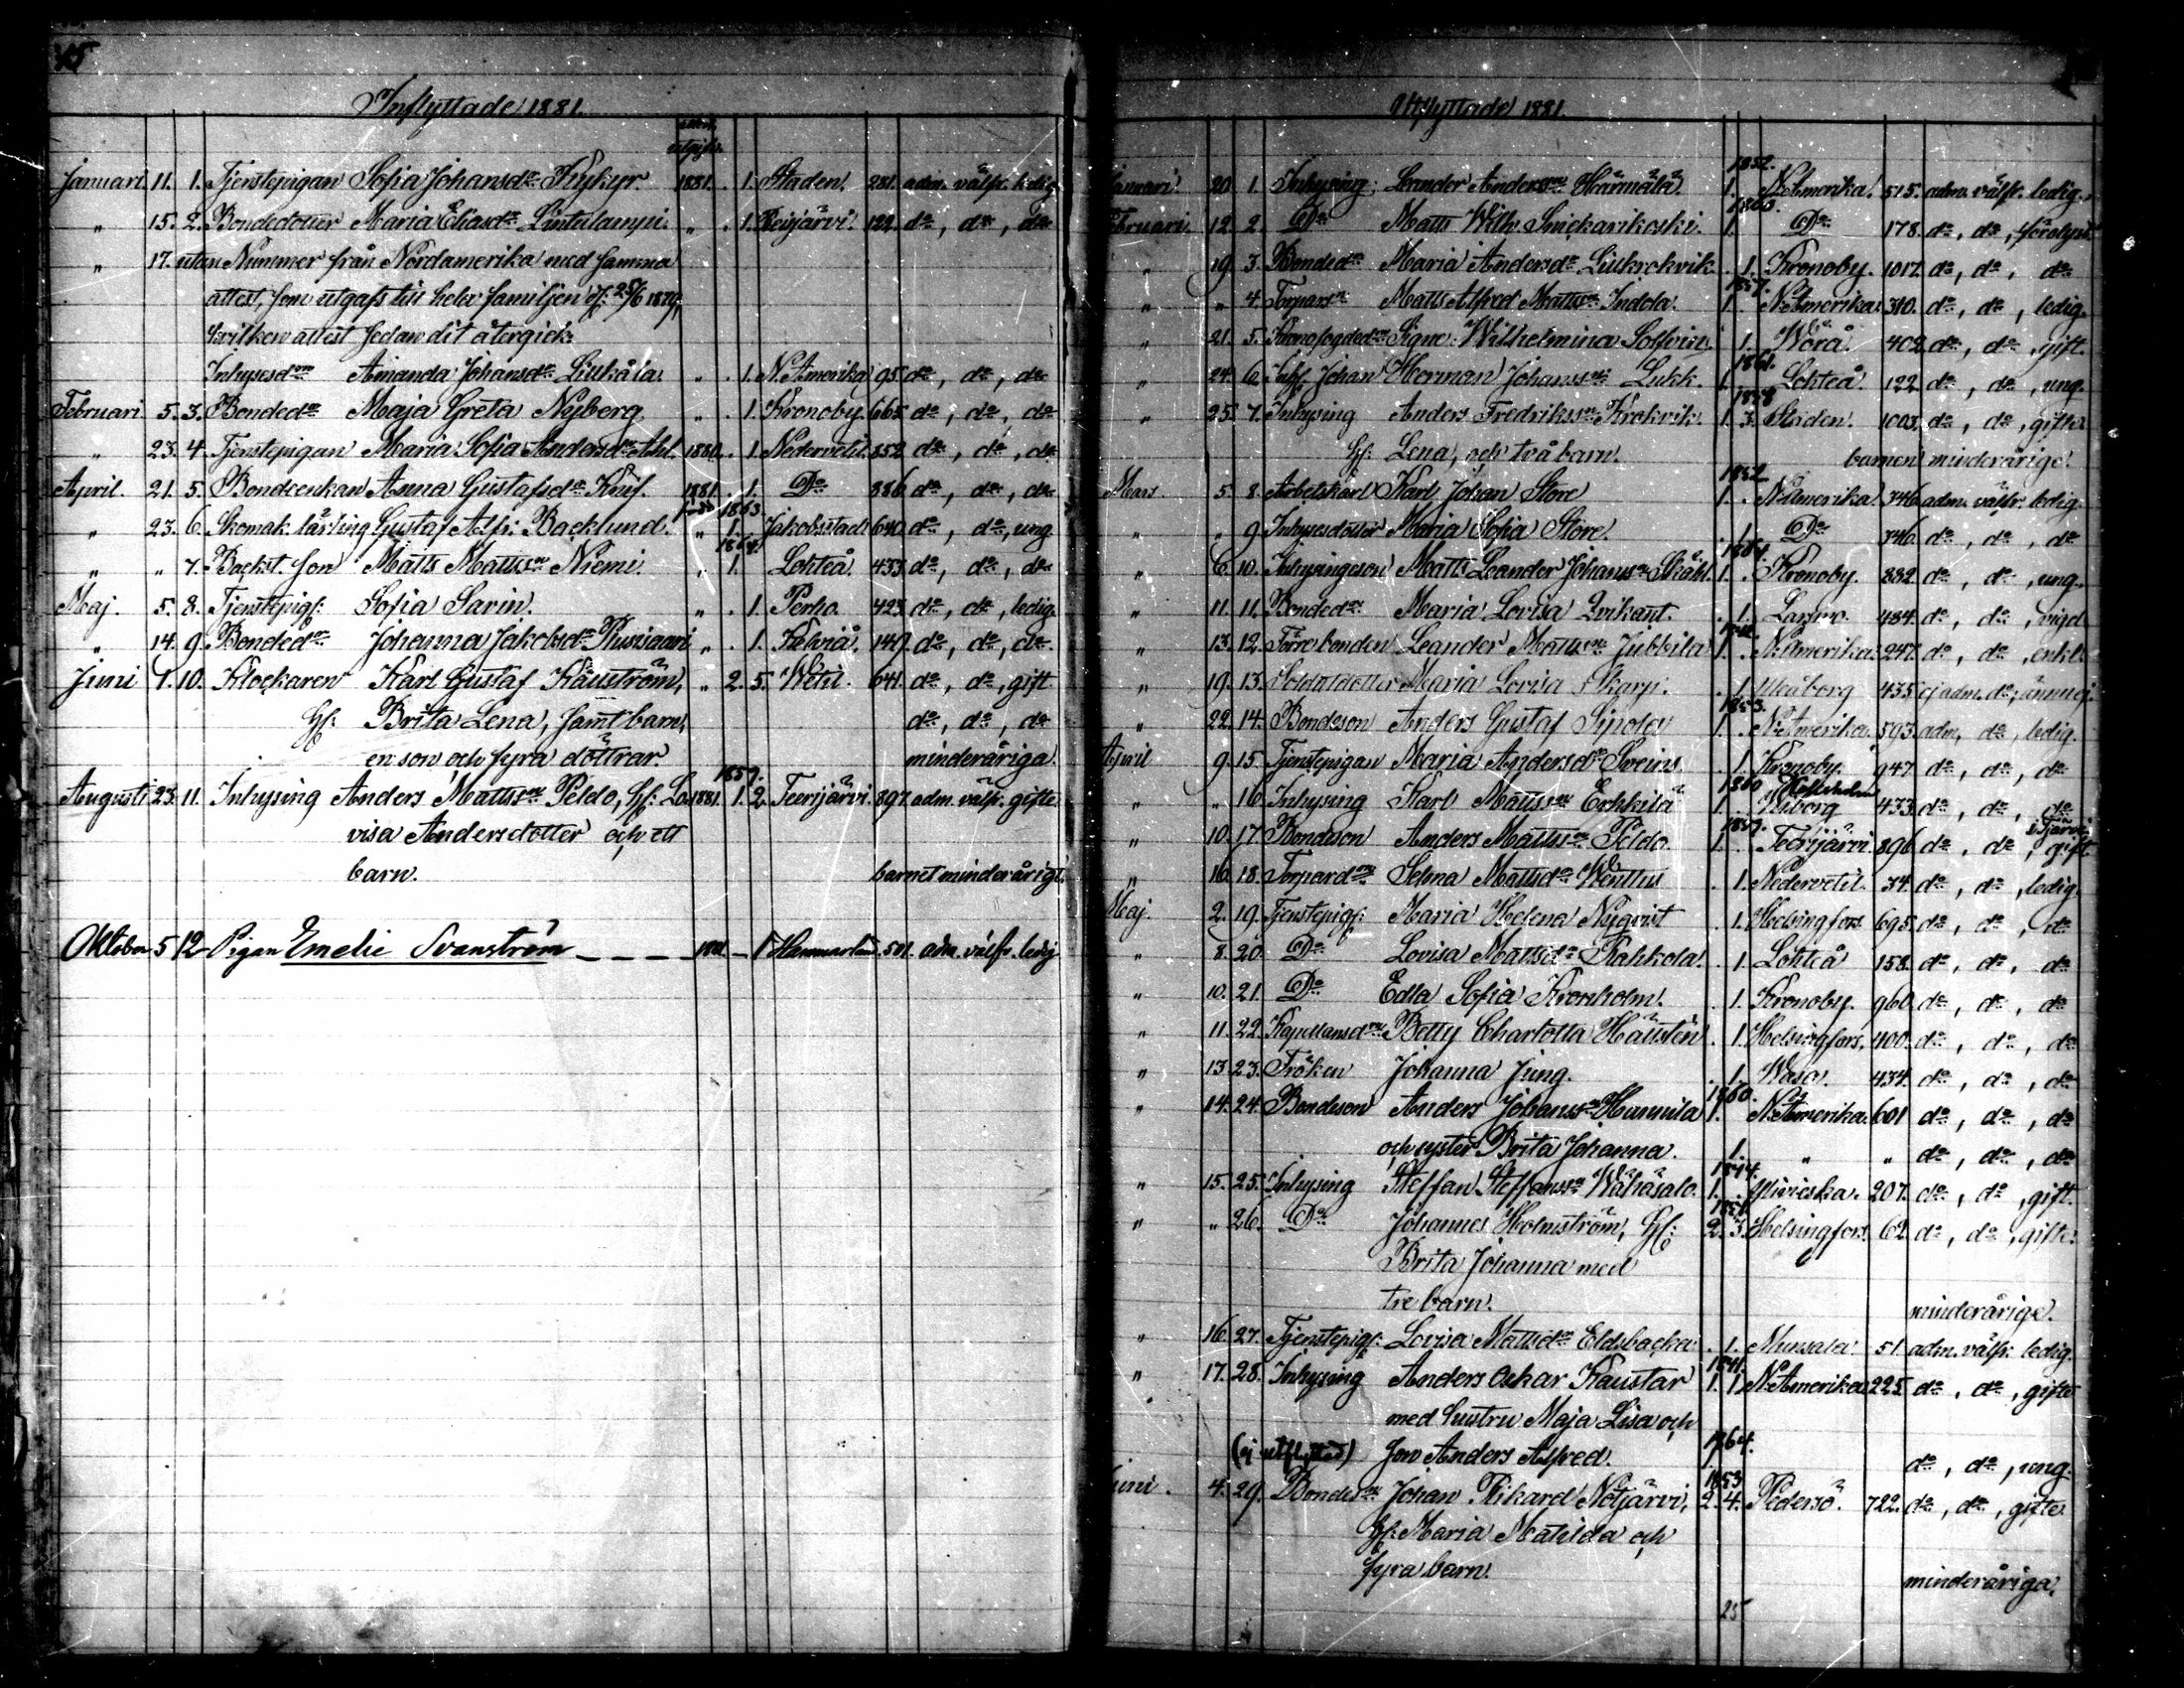 45
Inflyttade 1881.
attest. utgifv.
Januari 11. 1. Tjenstepigan Sofia Johansdr 1881. . 1. Staden. 281. adm. välfr. ledig
" 15. 2. Bondedotter Maria Eliasdr Lintulampi. " . 1. Reisjärvi 122. do, do, do
" 17. utan Nummer från Nordamerika med samma
attest, som utgafs till hela familjen d. 25/6 1879,
hvilken attest sedan dit återgick.
Inhysesdr Amanda Johansdr Lillkåla. " . 1. N. Amerika 95. do, do, do
Februari 5. 3. Bondedr Maja Greta Nyberg. " . 1. Kronoby. 665. do, do, do
" 23. 4. Tjenstepigan Maria Sofia Andersdr Ahl. 1880. . 1. Nedervetil. 852. do, do, do
April. 21. 5. Bondeenkan Anna Gustafsdr Knif. 1881 . 1. Do 886. do, do, do
" 23. 6. Skomak. lärling Gustaf Alfr. Backlund. " 1863. 1. Jakobstad 640. do, do, ung.
" " 7. Backst. son Matts Mattsson Niemi. " 1864. 1. Lohteå. 433. do, do, do
Maj. 5. 8. Tjenstepig: Sofia Sarin. " . 1. Perho. 423. do, do, ledig.
" 14. 9. Bondedr Johanna Jakobsdr Russigaari " . 1. Kelviå. 149. do, do, do.
Juni 1. 10. Klockaren Karl Gustaf Käuström, " 2. 5. Vetil. 641. do, do, gift.
Hf: Brita Lena, samt barn, do, do, do
en son och fyra döttrar minderåriga.
Augusti 23. 11. Inhysing Anders Mattsson Peldo, Hf: Lo- 1881 1857. 1. 2. Teerijärvi. 897. adm. välfr. gifte
visa Andersdotter och ett
barn. barnet minderårigt.
Oktober 5 12 Pigan Emelie Svanström — — — — 1881. — 1 Hammarland. 501. adm. välfr. ledig
Utflyttade 1881.
Januari 20 1. Inhysing Leander Andersson Härmälä 1852. 1. . N. Amerika. 515. adm. välfr. ledig.
Februari. 12 2. Do Matts Wilh. 1860. 1. Do 178. do, do,
" 19 3. Bondedr Maria Andersdr Lillkrokvik . 1. Kronoby. 1017. do, do, do
" " 4. Torparsn Matts Alfred Mattsson Indola. 1857. 1. N. Amerika 310. do, do, ledig.
" 21. 5. Kronofogdedr Signe Wilhelmina . 1. Wörå. 402. do, do, gift.
" 24. 6. Johan Herman Johansson Lukk. 1861. 1. . Lohteå. 122 do, do, ung.
" 25. 7. Inhysing Anders Fredriksson Krokvik. 1858 1. 3. Staden. 1003. do, do, gifta
Hf: Lena, och två barn. barnen minderårige.
Mars. 5. 8. Arbetskarl Karl Johan Store 1852 1. . N. Amerika. 346 adm. välfr. ledig.
" " 9. Inhysesdotter Maria Sofia Store. . 1. Do 346. do, do, do
" 6. 10. Inhysingeson Matts Leander Johansson 1864. 1. . Kronoby. 882 do, do, ung.
" 11. 11. Bondedr Maria Lovisa Qvikant. . 1. Larsmo. 484. do, do, vigd
" 13. 12. bonden Leander Mattsson Jubbila 1. . N. Amerika. 247. do, do, enkl.
" 19. 13. Soldatdotter Maria Lovisa Skarp. . 1. Uleåborg 435. ej adm. do,
" 22. 14. Bondeson Anders Gustaf Sipola 1853. 1. . N. Amerika. 593. adm, do, ledig.
April 9. 15. Tjenstepigan Maria Andersdr Sveins . 1. Kronoby. 947. do, do, do
" " 16. Inhysing Karl Mattsson Erkkilä 1860 1. . Wiborg 433. do, do, do
" 10. 17. Bondeson Anders Mattsson Peldo. 1857. 1. . Teerijärvi 896 do, do, gift i Tjärvi
" 16 18. Torpardr Selma Mattsdr Wenttus . 1. Nedervetil. 34. do, do, ledig.
Maj. 2. 19. Tjenstepig: Maria Helena Nyqvist . 1. Helsingfors. 695. do, do, do
" 8. 20. Do Lovisa Mattsdr Rahkola. . 1. Lohteå 158. do, do, do
" 10. 21. Do Edla Sofia Kronholm. . 1. Kronoby. 960. do, do, do
" 11. 22. Kapellansdr Betty Charlotta Hällstén . 1. Helsingfors. 400. do, do, do
" 13. 23. Fröken Johanna Jung. . 1. Wasa. 434. do, do, do
" 14. 24. Bondeson Anders Johansson Hannila 1860. 1. N. Amerika. 601 do, do, do
och syster Brita Johanna. . 1. " " do, do, do
" 15. 25. Inhysing Steffan Steffansson Wähäsalo. 1844. 1. . Ylivieska. 207. do, do, gift.
" " 26. Do Johannes Holmström, Hf: 1851 2. 3. Helsingfors. 62. do, do, gifte.
Brita Johanna med
tre barn. minderårige.
" 16. 27. Tjenstepig: Lovisa Mattsdr Eldsbacka . 1. Munsala 51. adm. välfr. ledig.
" 17. 28. Inhysing Anders Oskar Kaustar 1841. 1. 1. N. Amerika 225. do, do, gifte
med hustru Maja Lisa och
(ej utflyttad) son Anders Alfred. 1864. 1. do, do, ung.
Juni. 4. 29. Bondesn Johan Rikard Nötjärvi, 1853 2. 4. Pedersö. 722. do, do, gifte.
Hf: Maria Matilda och
fyra barn. minderåriga.
25